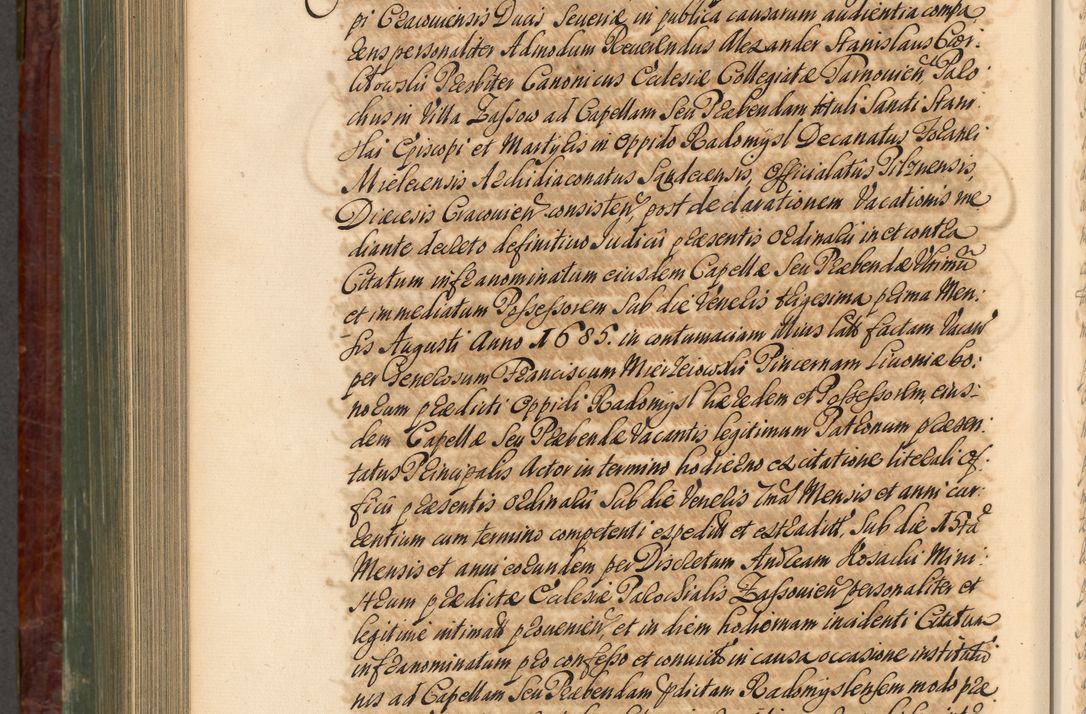 pi Cracoviensis Ducis Severiæ in publica causarum audientia compa
rens personaliter Admodum Reverendus Alexander Stanislaus
Presbiter Canonicus Ecclesiæ Collegiatæ Tarnovien Paro
chus in Villa Zassow ad Capellam Seu Præbendam tituli Sancti Stani
slai Episcopi et Martyris in Oppido Radomysl Decanatus Foranei
Mielecensis Archidiaconatus Sandecensis, Officialatus Pilznensis,
Diæcesis Cracovien consisten, post declarationem Vacationis me
diante decreto definitivo Judicii præsentis ordinarii in et contra
Citatum infranominatum eiusdem Capellæ Seu Præbendæ Ultimū
et immediatum Possessorem Sub die Veneris trigesima prima Men:
sis Augusti Anno 1685. in contumaciam illius latt factam Vacan
per Generosum Franciscum Mierzeiowski Pincernam Livoniæ bo:
norum prædicti Oppidi Radomysl hæredem et Possessorem eius-
dem Capellæ Seu Præbendæ Vacantis legitimum Patronum præsen:
tatus Principalis Actor in termino hodierno ex citatione literali of
ficii præsentis ordinarii Sub die Veneris Mensis et anni cur:
rentium cum termino competenti expeditt et extraditt, Sub die 15ta
Mensis et anni eorundem per Discretum Andream Kosacki Mini:
strum prædictæ Ecclesiæ Parochialis Zassovien personaliter et
legitime intimatt provenien, et in diem hodiernam incidenti Citatum
infranominatum pro confesso et convicto in causa occasione institutio
nis ad Capellam Seu Præbendam pdictam Radomyslensem modo præ